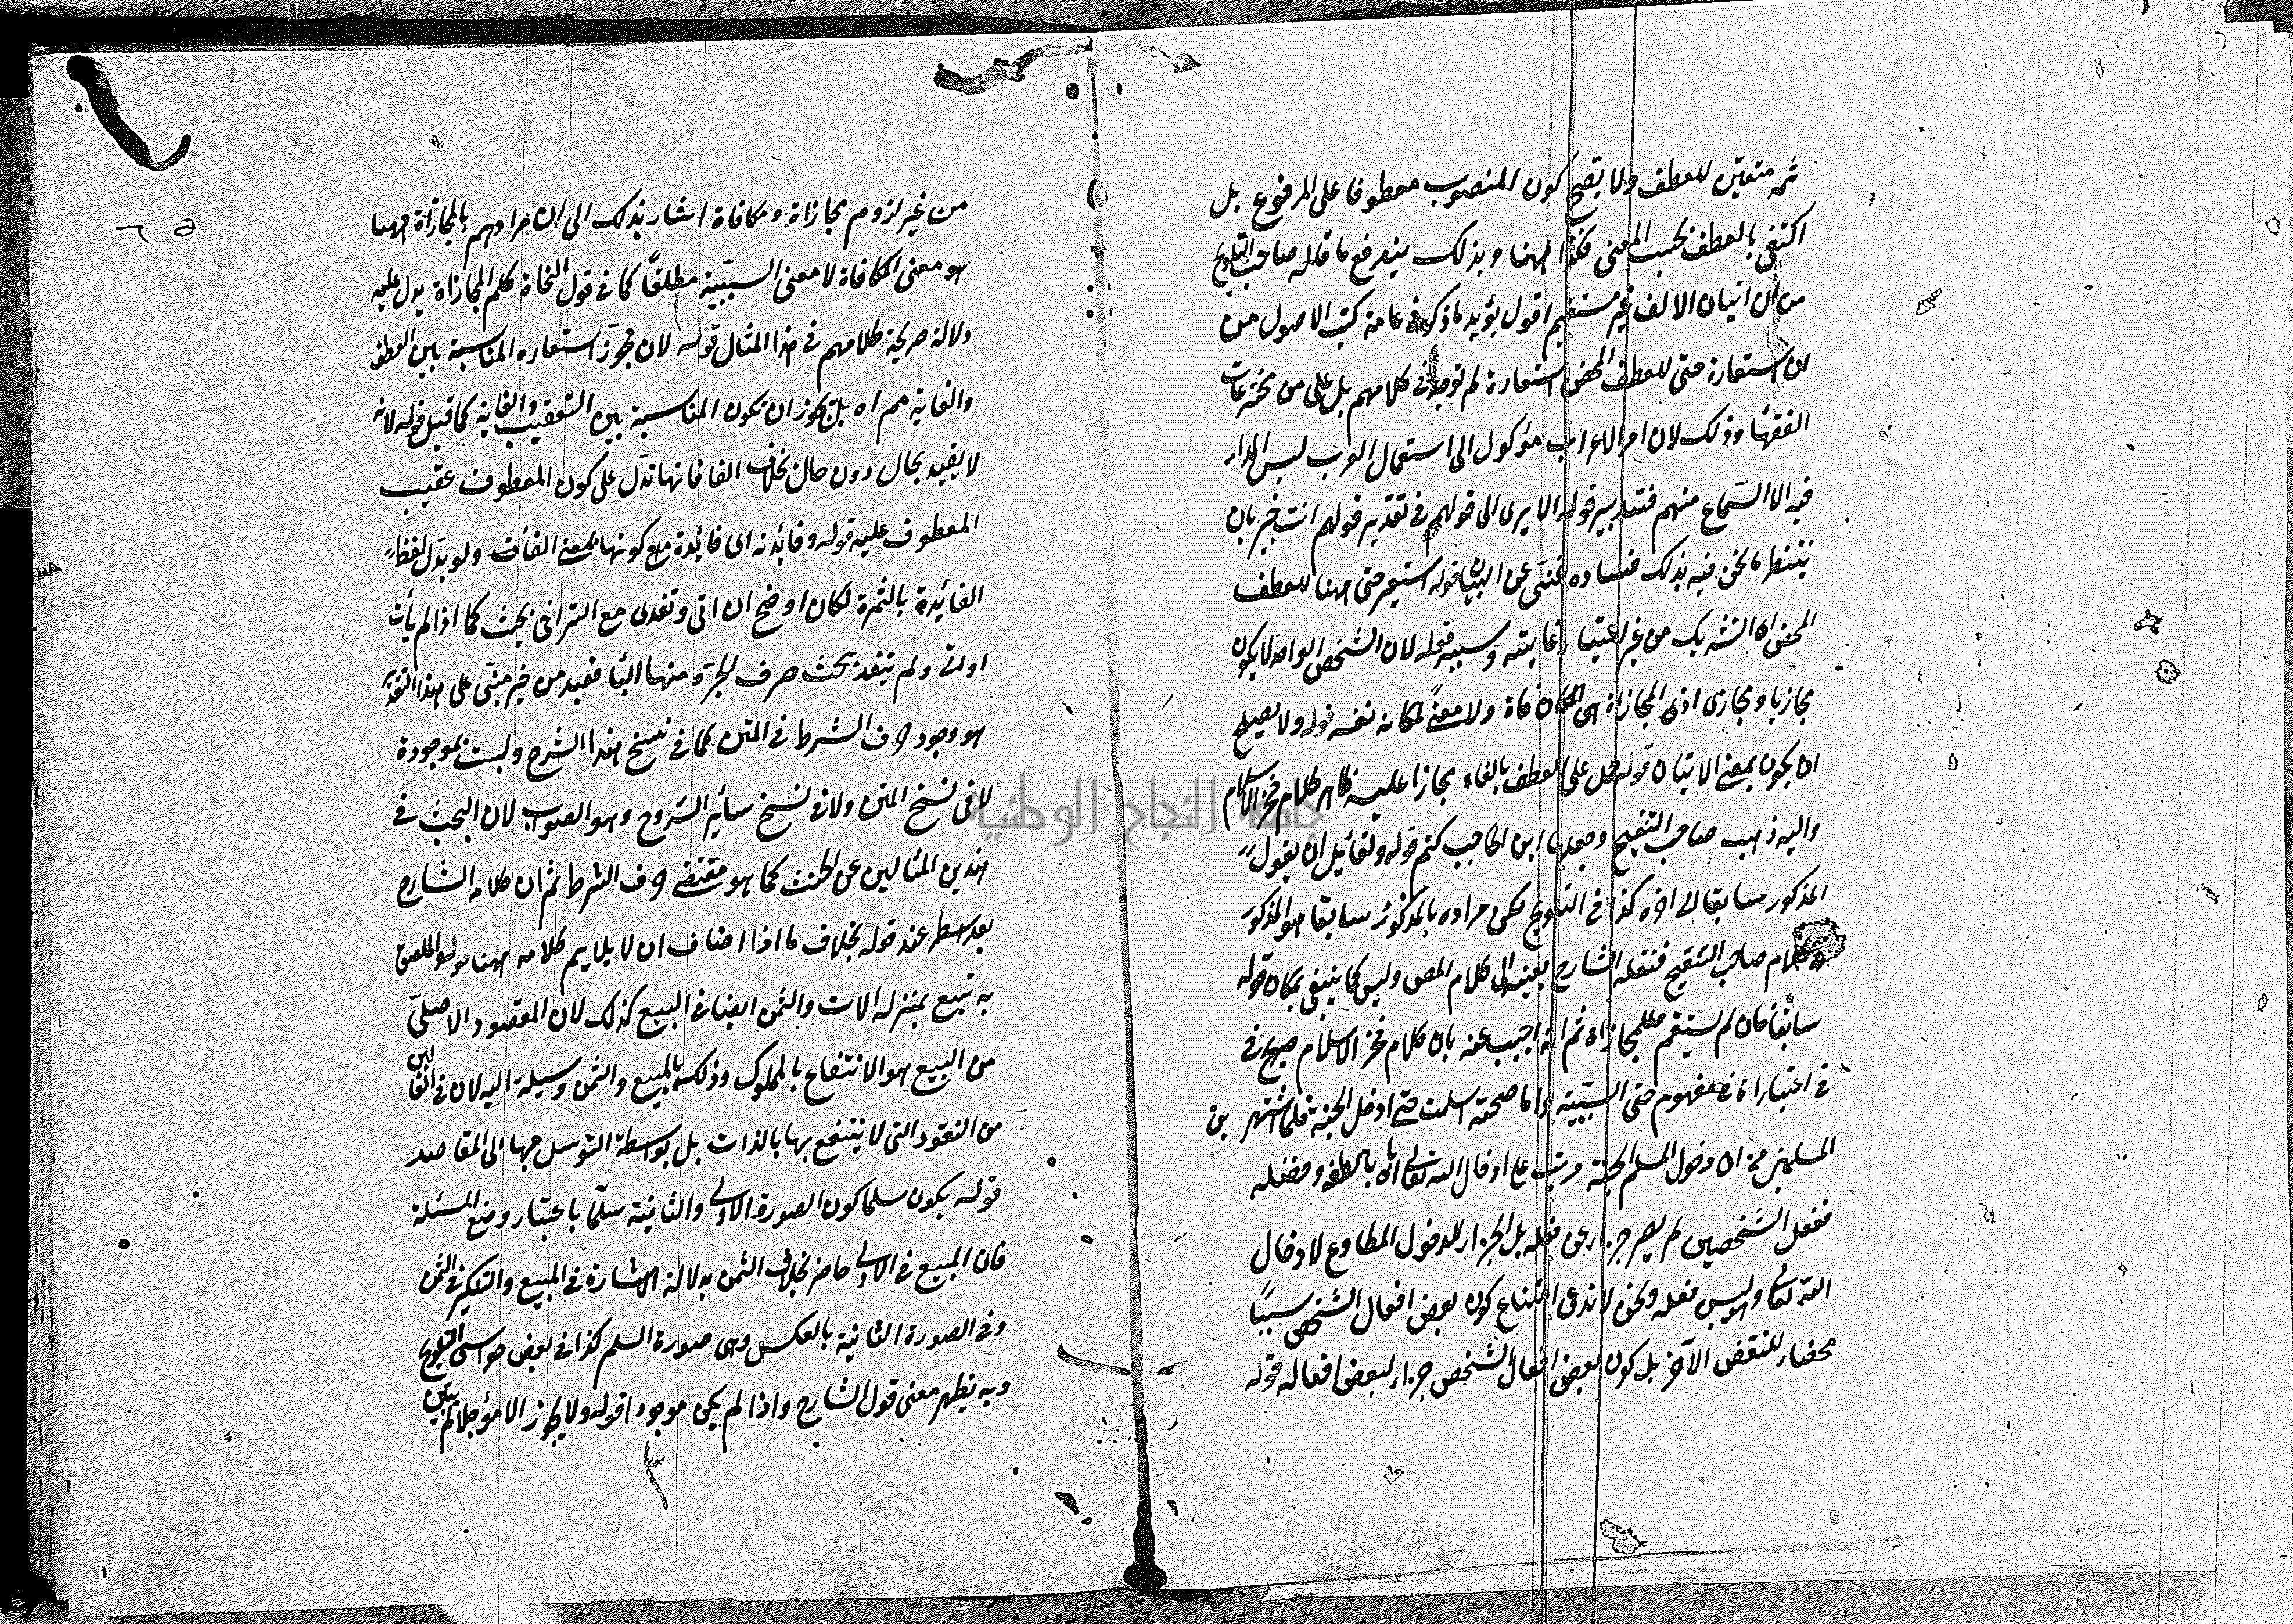 ثمه متعين للعطف ولا يصح كون المنصوب معطوفا على المرفوع بل
اكتفى بالعطف بحسب المعنى فكذا ههنا وبذلك يندفع ما قاله صاحب التلويح
من ان اتيان الالف غير مستقيم اقول يؤيد ما ذكر في عامة كتب الاصول من
ان استعارة حتى للعطف المحض استعارة لم توجد في كلامهم بل هى من مخترعات
الفقهاء وذلك لان امر الاعراب موكول الى استعمال العرب ليس المدار
فيه الا السماع منهم فتدبر قوله الا يرى الى قولهم في تقدير قولهم انت خبير بان
تنظر ما نحن فيه بذلك فساده غنى عن البيان قوله استعير حتى ههنا للعطف
المحض اى التشريك من غير اعتبار غايته وسببية قوله لان الشخص الواحد لا يكون
مجازيا ومجازى اذ المجازاة هى المكافاة ولا معنى لمكافاة نفسه قوله ولا يصلح
ان يكون بمعنى الاتيان قوله حمل على العطف بالفاء مجازا عليه ظاهر كلام فخر الاسلام
واليه ذهب صاحب التنقيح وجعله ابن الحاجب كثم قوله ولقائل ان يقول
المذكور سابقا الى اخره كذا في التلويح لكن مراده بالمذكور سابقا هو المذكور
في كلام صاحب التنقيح فنقله الشارح بعينه الى كلام المص وليس كما ينبغى مكان قوله
سابقا فان لم يستقم للمجازاة ثم انه اجيب عنه بان كلام فخر الاسلام صريح في
في اعتباراة في مفهوم حتى السببية واما صحة اسلمت حتى ادخل الجنة فلما اشتهر بن
المسلمين من ان دخول المسلم الجنة مرتب على ادخال الله تعالى اياه بلطفه وفضله
ففعل الشخصين لم يصر جزاء عن فعله بل الجزاء للدخول المطاوع لادخال
الله تعالى وليس فعله ونحن لا ندعى امتناع كون بعض افعال الشخص سببا
محضا للنقض الآخر بل كون بعض افعال الشخص جزاء لبعض افعاله قوله
من غير لزوم مجازاة ومكافاة اشار بذلك الى ان مرادهم بالمجازاة ههنا
هو معنى المكافاة لا معنى السببية مطلقا كما في قول النحاة كلم المجازاة يدل عليه
دلالة صريحة كلامهم في هذا المثال قوله لان مجوز استعاره المناسبة بين العطف
والغاية مم اه بل يجوز ان تكون المناسبة بين التعقيب والغاية كما قيل قوله لانه
لا يفيد بحال دون حال بخلاف الفا فانها تدل على كون المعطوف عقيب
المعطوف عليه قوله وفائدته اى فائدة مع كونها بمعنى الفاء ولو بدل لفظ
الفائدة بالثمرة لكان اوضح ان اتى وتغدى مع التراخى يحنث كما اذا لم يأت
او اتى ولم يتغد بحث حرف الجر ومنها البا فعبده من غير مبنى على هذا التقدير
هو وجود حرف الشرط في المتن كما في نسخ هذا الشرح وليست بموجودة
لا في نسخ المتن ولا في نسخ سائر الشروح وهو الصواب لان البحث في
هذين المثالين عن الحنث كما هو مقتضى حرف الشرط ثم ان كلام الشارح
بعد سطر عند قوله بخلاف ما اذا اضاف ان لا يلايم كلامه ههنا قوله والملصق
به تبع بمنزلة الآلات والثمن ايضا في البيع كذلك لان المقصود الاصلى
من البيع هو الانتفاع بالمملوك وذلك بالمبيع والثمن وسيلة اليه لان في الغالب
من النقود التى لا ينتفع بها بالذات بل بواسطة التوسل بها الى المقاصد
قوله يكون سلما كون الصورة الاولى والثانية سلما باعتبار وضع المسئلة
فان المبيع في الاولى حاضر بخلاف الثمن بدلالة الاشارة في المبيع والتنكير في الثمن
وفى الصورة الثانية بالعكس وهى صورة السلم كذا في بعض حواشى التلويح
وبه يظهر معنى قول الشارح واذا لم يكن موجودا قوله ولا يجوز الا مؤجلا
جامعة النجاح الوطنية